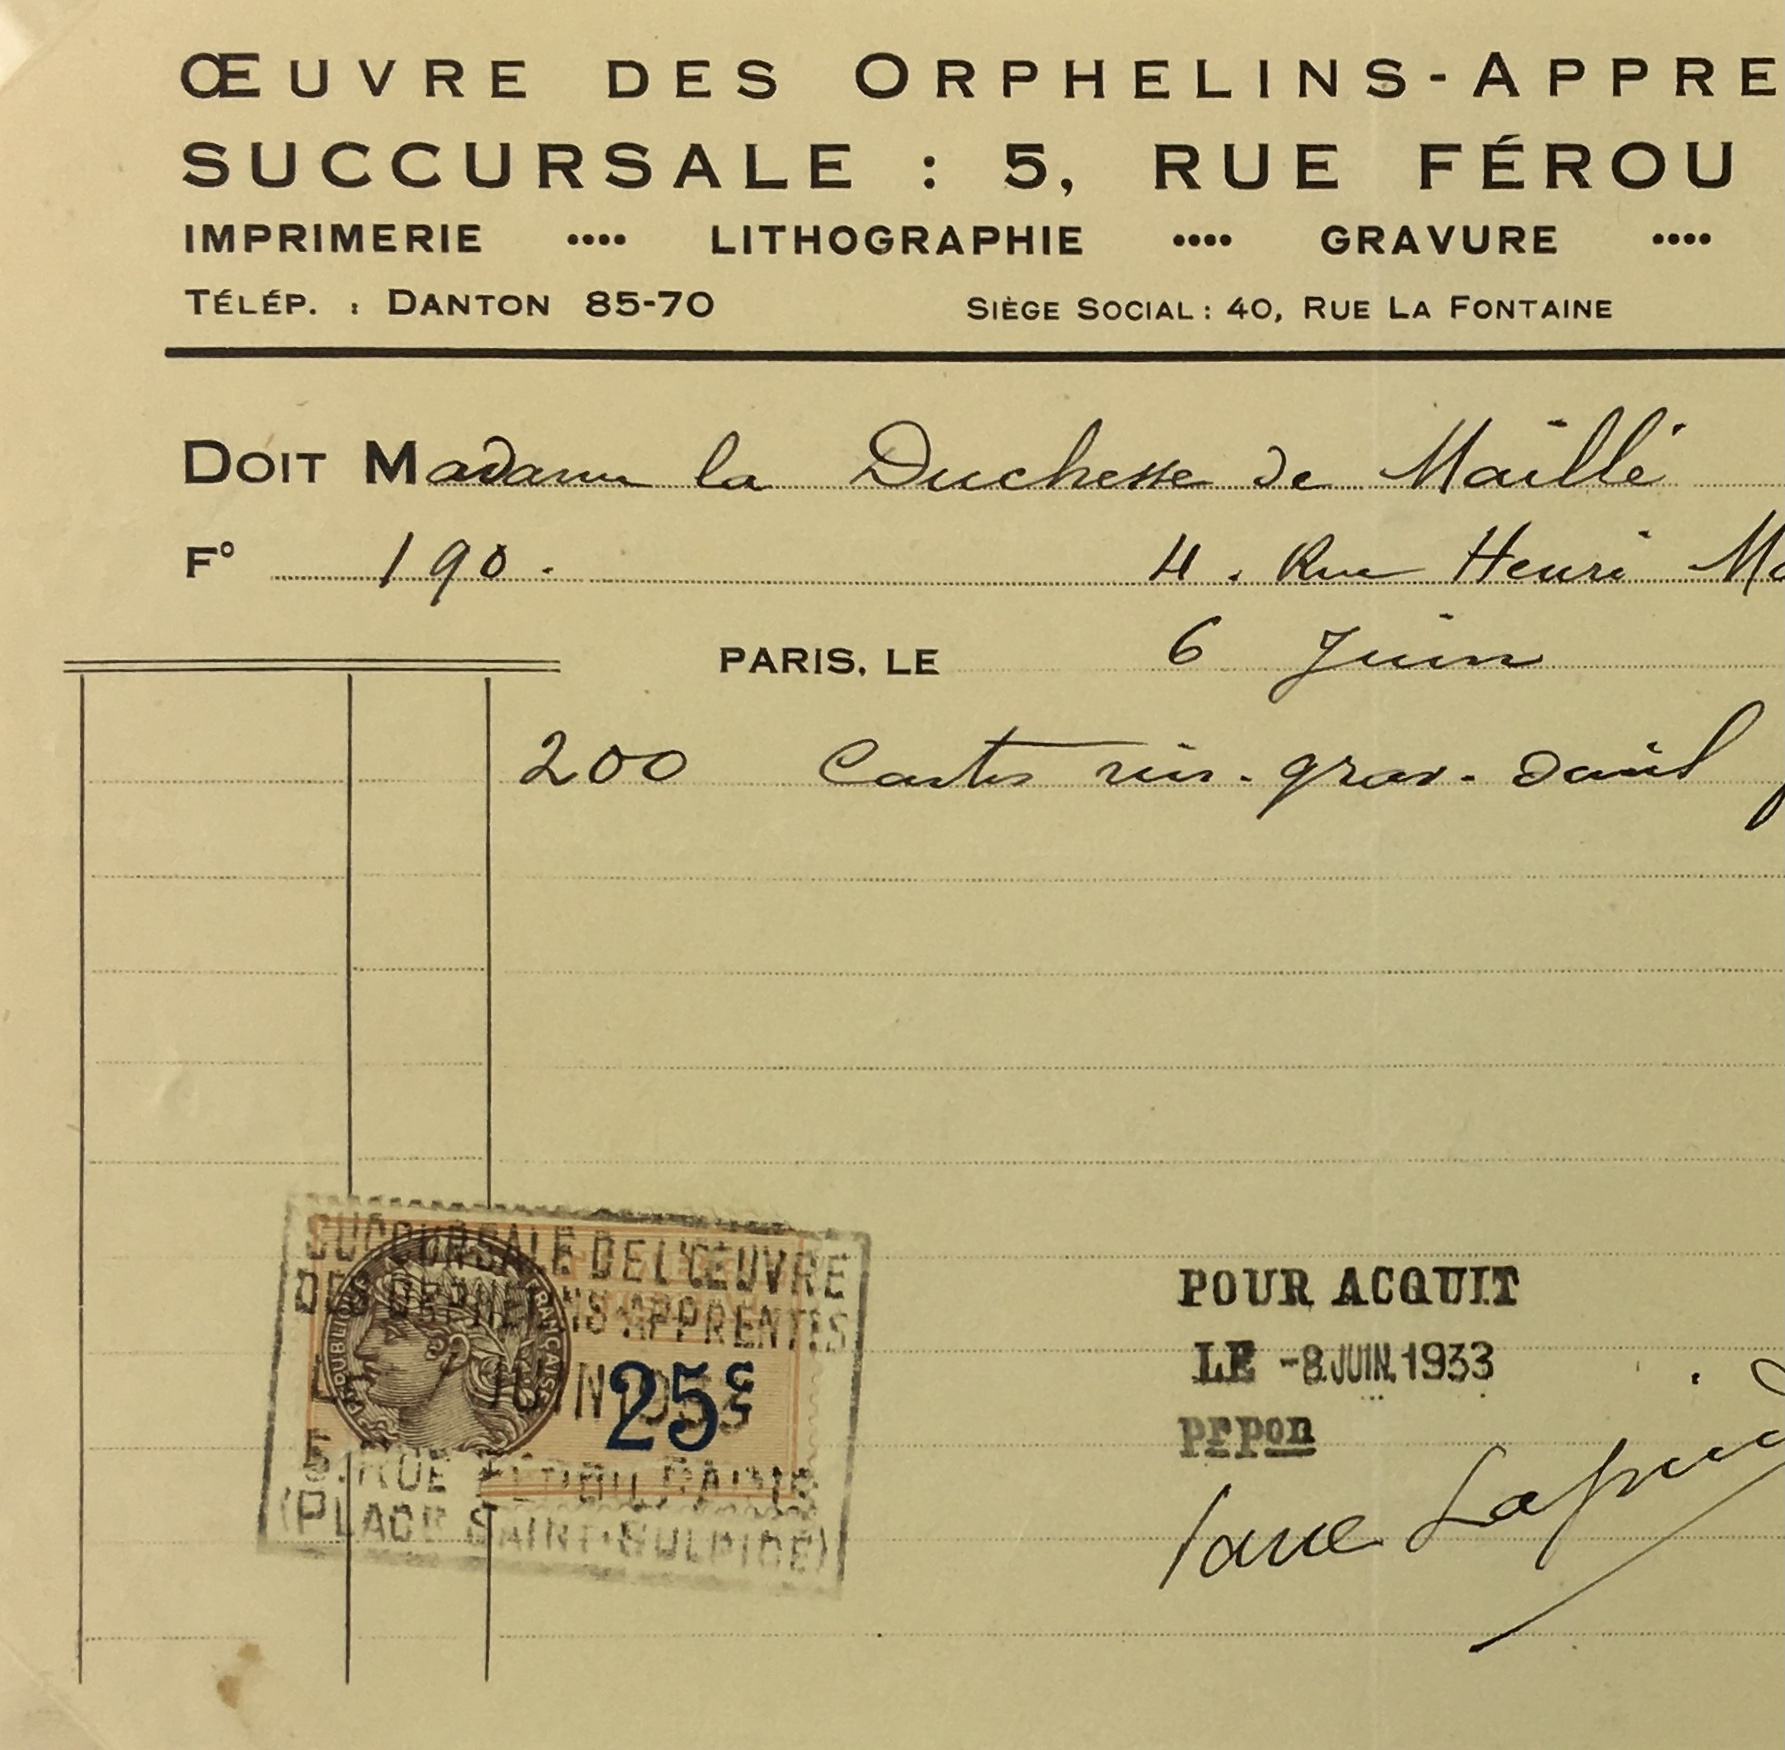 ŒUVRE DES ORPHELINS-APPRE
SUCCURSALE : 5, RUE FÉROU
IMPRIMERIE •••• LITHOGRAPHIE •••• GRAVURE ••••
TÉLÉP. : DANTON 85-70 SIÈGE SOCIAL : 40, RUE LA FONTAINE
DOIT Madame la Duchesse de Maillé
F° 190. 4. Rue Henri Mo
PARIS, LE 6 Juin
200 Cartes vis. grav. deuil
SUCCURSALE DE L'ŒUVRE
DES ORPHELINS-APPRENTIS
RÉPUBLIQUE FRANÇAISE
JUIN
25c
5, RUE FÉROU, PARIS
(PLACE SAINT-SULPICE)
POUR ACQUIT
LE -8 JUIN. 1933
prpon